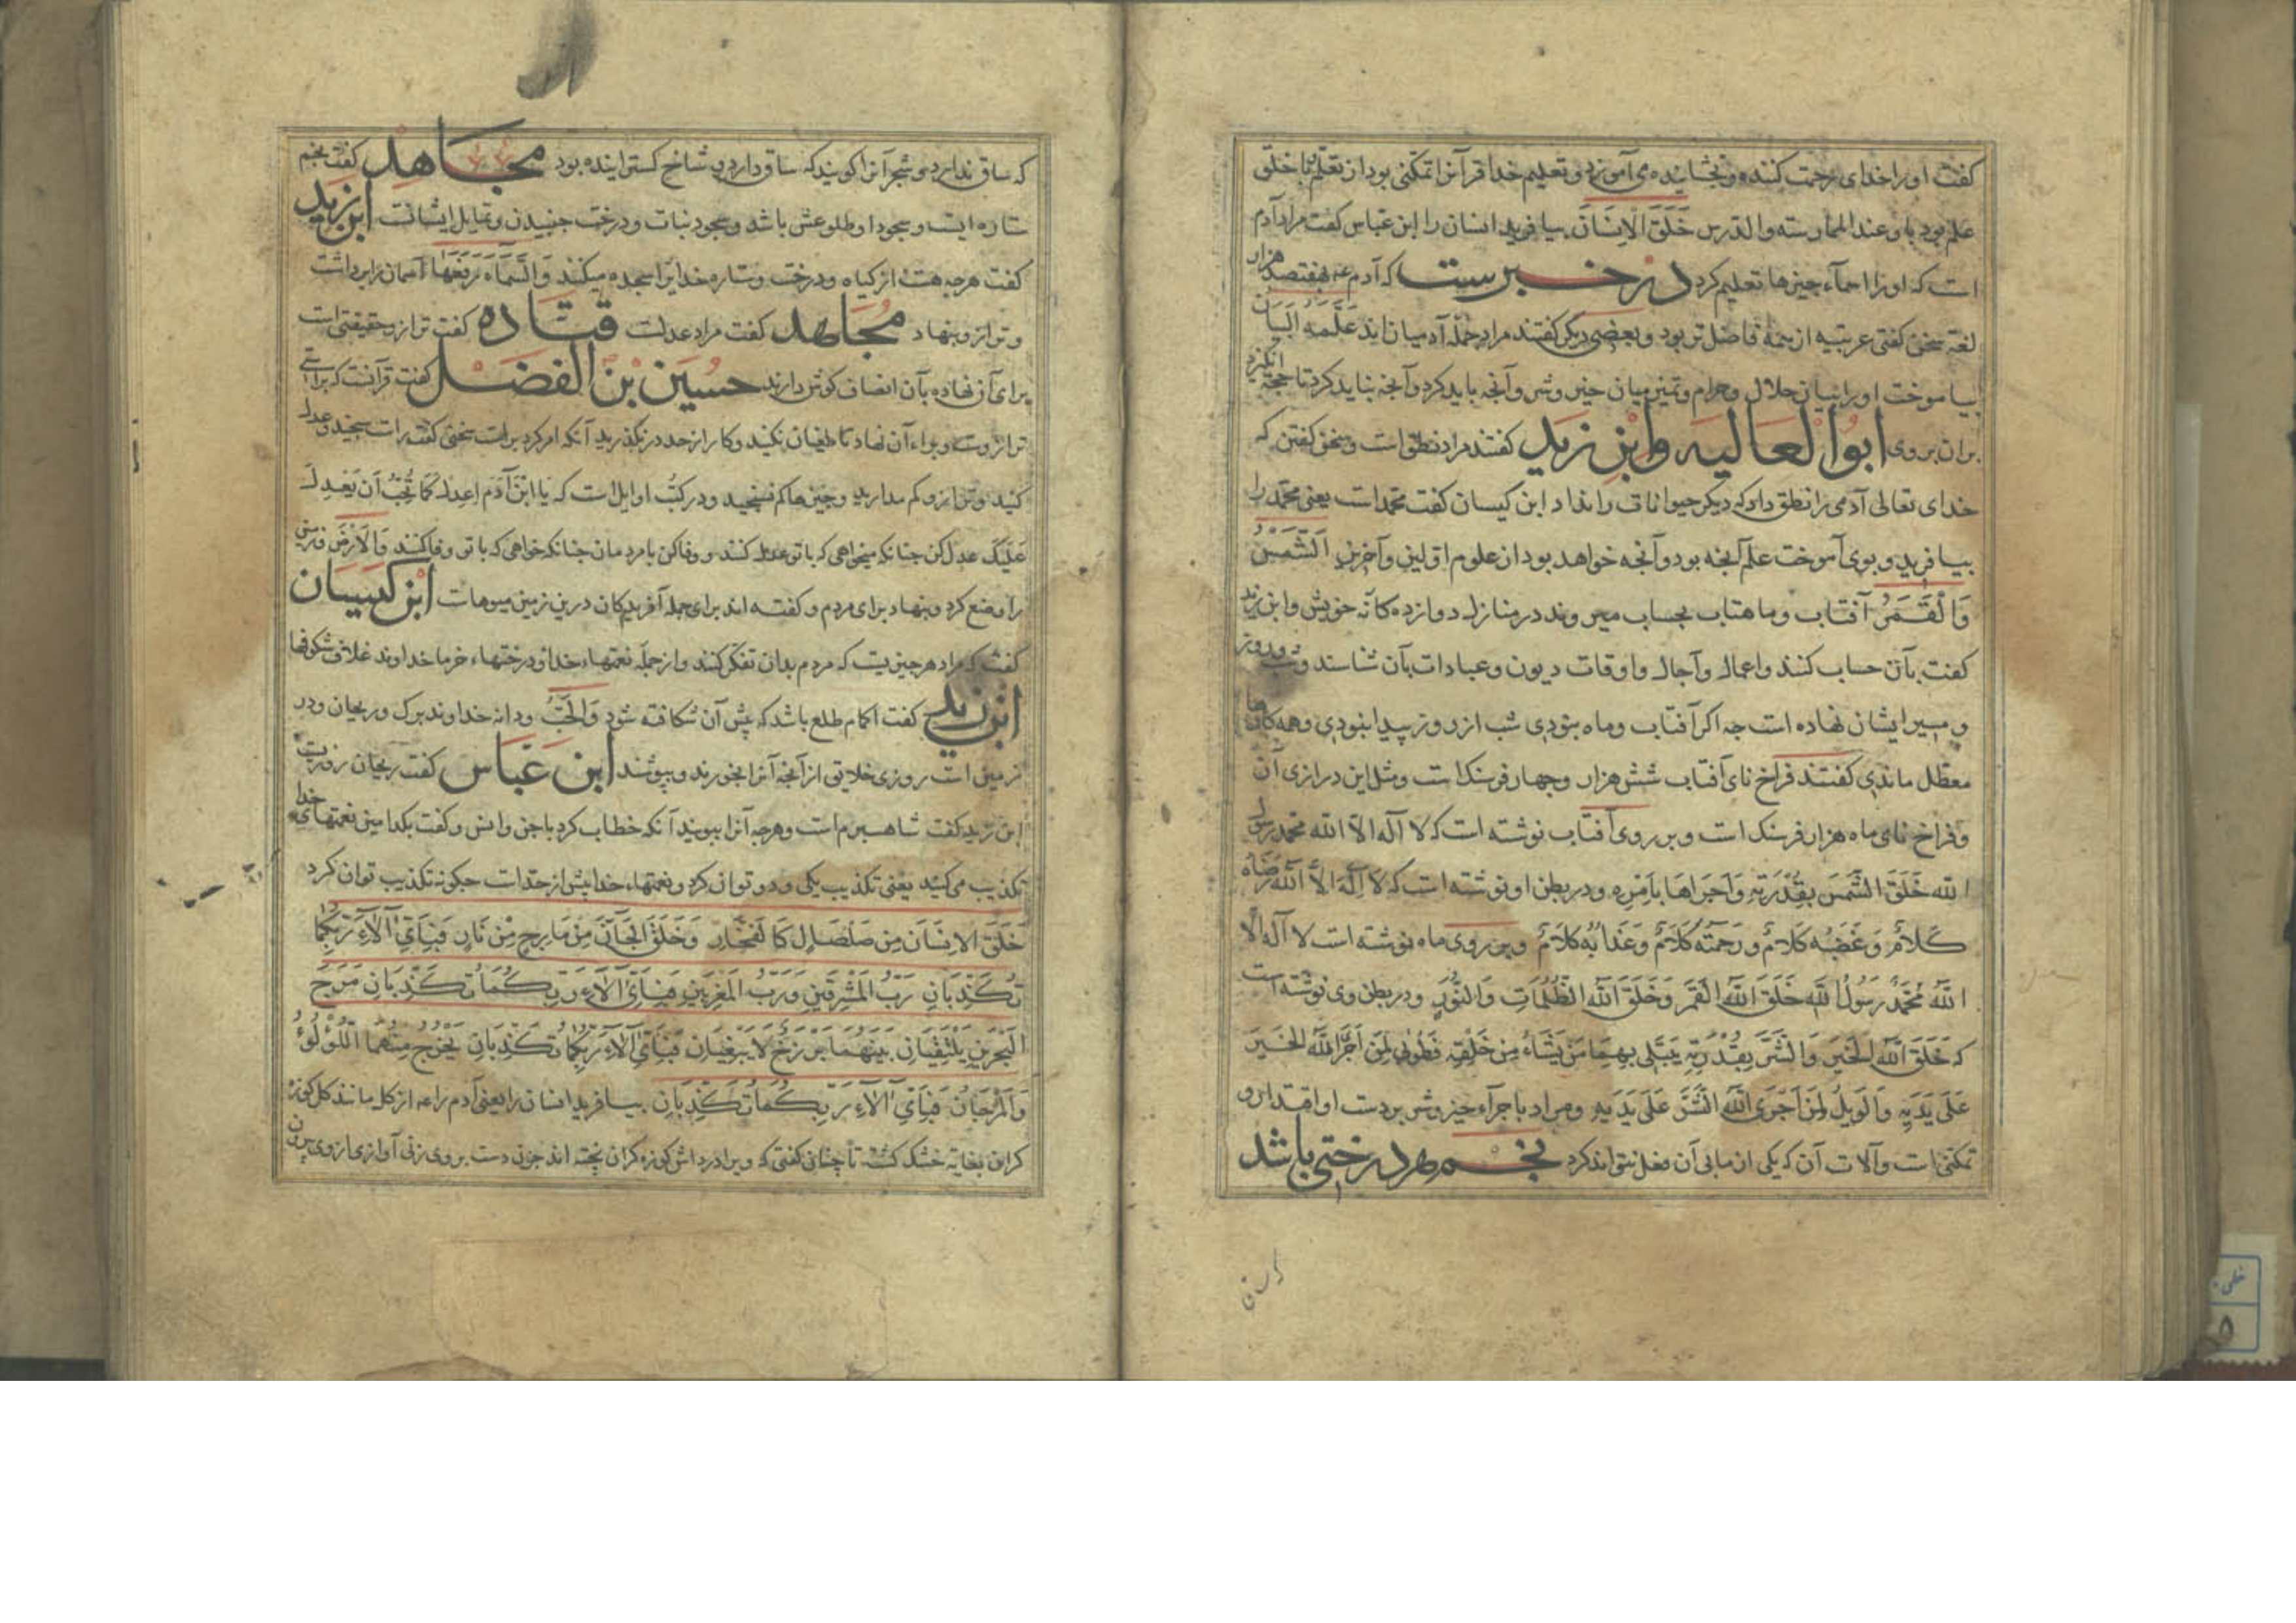 کفت اورا خدای رحمت کننده و بخشاینده می آموزد و تعلیم خدا قرآنرا تمکنی بود از تعلم تا خلق
علم بود باو عند الممارسته والتدرس خَلَقَ الْاِنسَانَ بیافرید انسان را ابن عباس کفت مراد آدم
است که اورا اسمآء چیزها تعلیم کرد در خبرست که آدم عم بهفتصد هزار
لغة سخن کفتی عربیه از همه فاضل تر بود و بعضی دیکر کفتند مراد جمله آدمیان اند عَلَّمَهُ الْبَیَانَ
بیاموخت اورا بیان حلال و حرام و تمییز میان خیر و شر و آنچه باید کرد و آنچه نباید کرد تا حجة انکیزد
بران بروی ابوا لعالیه وابن زید کفتند مراد نطق است و سخن کفتن که
خدای تعالی آدمی را نطق داد که دیکر حیوانات را نداد ابن کیسان کفت محمد است یعنی محمد را
بیافرید و بوی آموخت علم آنچه بود و آنچه خواهد بود از علوم اولین و آخرین اَلشَّمْسُ
وَالْقَمَرُ آفتاب و ماهتاب بحساب میروند در منازل دوازده کانه خویش وابن زید
کفت بآن حساب کنند و اعمال و آجال و اوقات دیون و عبادات بآن شناسند و شب و روز
و مسیر ایشان نهاده است چه اکر آفتاب و ماه نبودی شب از روز پیدا نبودی و همه کارها
معطل ماندی کفتند فراخ نای آفتاب شش هزار و چهار فرسنک است و مثل این درازی آن
وفراخ نای ماه هزار فرسنک است و بر روی آفتاب نوشته است که لا آله الا الله محمد رسول
الله خَلَقَ الشَّمْسَ بِقُدْرَتِهِ وَاَجْرَاهَا بِاَمْرِه و در بطن او نوشته است که لا اِلَهَ اِلَّا اللهُ رِضَاهُ
کَلَامٌ وَغَضَبُه کَلَامٌ وَرَحْمَتُه کَلَامٌ وَعَذَابُه کَلَامٌ و بر روی ماه نوشته است لا آله الا
الله مُحَمَّدٌ رَسُولُ الله خَلَقَ اللهُ الْقَمَرَ وَخَلَقَ اللهُ الظُّلُمَاتِ وَالنُّورِ و در بطن وی نوشته است
که خَلَقَ اللهُ الْخَیْرَ وَالشَّرَّ بِقُدْرَتِهِ یَبْتَلِی بِهِمَا مَنْ یَشَاءُ مِنْ خَلْقِهِ فَطُوبَی لِمَنْ اَجْرَی اللهُ الْخَیْرَ
عَلَی یَدَیْهِ وَالْوَیْلُ لِمَنْ اَجْرَی اللهُ الشَّرَّ عَلَی یَدَیْهِ و مراد باجرآء خیر و شر بر دست او اقتداری
تمکنی است و آلات آن که یکی ازمانی آن فعل نتواند کرد نجم هر درختی باشد
که ساق ندارد و شجر آنرا کویند که ساق دارد و شاخ کسترانیده بود مجاهد کفت نجم
ستاره ایست و سجود او طلوعش باشد و سجود نبات و درخت جنبیدن و تمایل ایشانست ابن زید
کفت هرچه هست از کیاه و درخت و ستاره خدایرا سجده میکنند وَالسَّمَآءَ رَفَعَهَا آسمان را برداشت
و ترازو بنهاد مجاهد کفت مراد عدلست قتاده کفت ترازو حقیقتی است
برای آن نهاده بآن انصاف کوش دارند حسین بن الفضل کفت قرآنست که براستی
ترازوست و برآء آن نهاد تا طغیان نکنید و کار از حد در نکذرید آنکه امر کرد براست سخن کفت راست سنجید و عدل
کنید و ترازو کم مدارید و چیزها کم مسنجید و در کتب اوایل است که یَا ابْنَ آدَمَ اِعْدِل کَمَا تُحِبُّ اَن یُعْدِلَ
عَلَیْکَ عدل کن چنانکه میخواهی که با تو عدل کنند و وفا کن با مردمان چنانکه خواهی که با تو وفا کنند وَالْاَرْضَ و زمین
را وضع کرد و بنهاد برای مردم و کفته اند برای جمله آفریدکان درین زمین میوهاست ابن کیسان
کفت که مراد هر چیزیست که مردم بدان تفکر کنند و از جمله نعمتهاء خدا و درختهاء خرما خداوند غلاف شکوفها
ابن زید کفت اکمام طلع باشد که پیش آن شکافته شود وَالْحَبُّ و دانه خداوند برک و ریحان و در
زمین است روزی خلایق از آنچه آنرا بخورند و بپوشند ابن عباس کفت ریحان رزق است
ابن زید کفت شاهسپرم است و هرچه آنرا ببویند آنکه خطاب کرد با جن و انس و کفت بکدامین نعمتهای خدا
تکذیب می کنید یعنی تکذیب یکی و دو توان کرد و نعمتهاء خدا بیش از حد است چکونه تکذیب توان کرد
خَلَقَ الاِنْسَانَ مِن صَلْصَالٍ کَالْفَخَّارِ وَخَلَقَ الْجَآنَّ مِن مَارِجٍ مِنْ نَارٍ فَبِاَیِّ اٰلَآءِ رَبِّکُمَا
تُکَذِّبَانِ رَبُّ الْمَشْرِقَیْنِ وَرَبُّ الْمَغْرِبَیْنِ فَبِاَیِّ اٰلَآءِ رَبِّکُمَا تُکَذِّبَانِ مَرَجَ
الْبَحْرَیْنِ یَلْتَقِیَانِ بَیْنَهُمَا بَرْزَخٌ لَا یَبْغِیَانِ فَبِاَیِّ اٰلَآءِ رَبِّکُمَا تُکَذِّبَانِ یَخْرُجُ مِنْهُمَا اللُّؤْلُؤُ
وَالْمَرْجَانُ فَبِاَیِّ اٰلَآءِ رَبِّکُمَا تُکَذِّبَانِ بیافرید انسان را یعنی آدم را عم از کل مانند کل کوزه
کران بغایه خشک کشته تا چنان کفتی که ویرا در داش کوزه کران پخته اند چون دست بروی زنی آوازی از وی بیرون